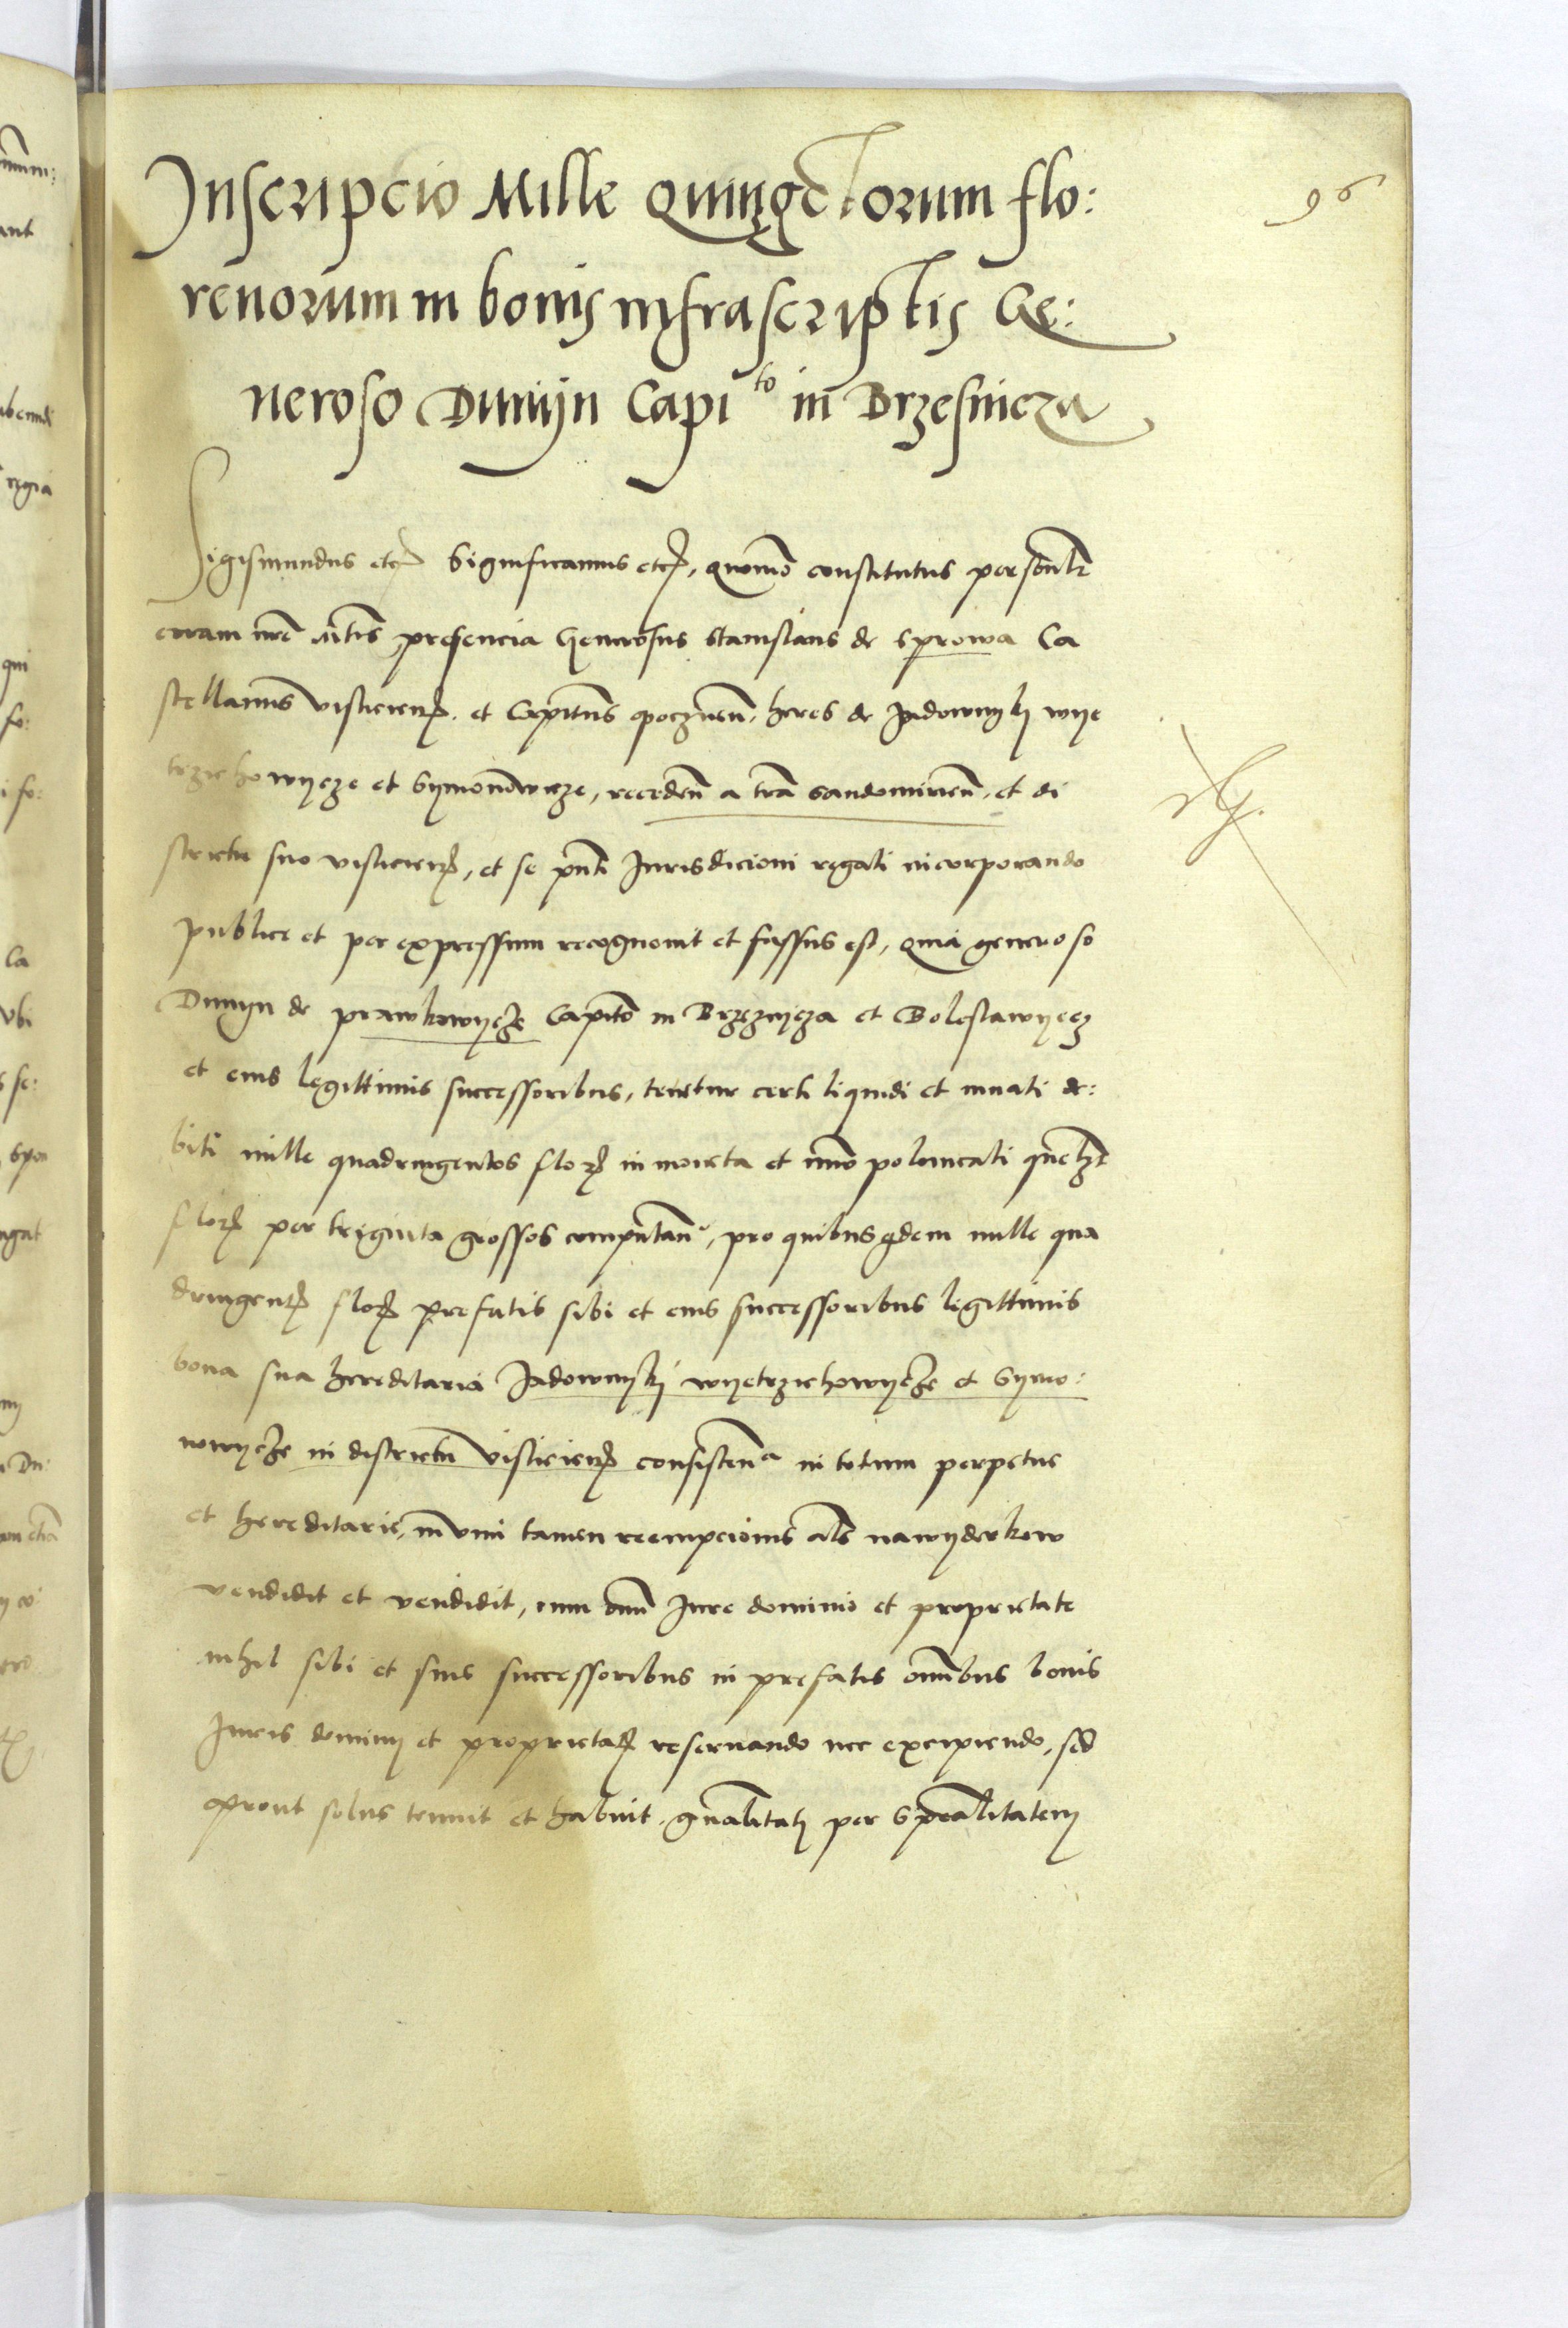 96
Inscripcio Mille Quingētorum flo:
renorum in bonis infrascriptis Ge:
neroso Dunijn Capito in Brzesnicza
Sigismundus etc Significamus etc, quomo constitutus personlr
coram nrē Mtis presencia Generosus Stanislaus de Sprowa Ca
stellanus visliciens. et Capitnus poczneñ. heres de Jadowniky wye
trzichowycze et Symonowicze, recedeñ a trā Sandomirieñ. et di
strictu suo visliciens, et se pnti Jurisdicioni regali incorporando
publice et per expressum recognovit et fassus est, quia generoso
Dunyn de prawkowycze Capito in Brzeznycza et Boleslawyecz
et eius legittimis successoribus, tenetur certi liquidi et innati de:
biti mille quadringentos flor in moneta et nūo polonicali qnelzt
flor per triginta grossos computañ, pro quibusqdem mille qua
dringent flor prefatis sibi et eius successoribus legittimis
bona sua hereditaria Jadownyky wyetrzichowycze et Symo:
nowycze in districtu visliciens consisteña in totum perpetue
et hereditarie, in vim tamen reempcionis als nawyderkow
vendidit et vendidit, cum omi Jure dominio et proprietate
nihil sibi et suis successoribus in prefatis omibus bonis
Juris dominij et proprietat reseruando nec excipiendo, sed
prout solus tenuit et habuit. gnalitati per spcialitatem